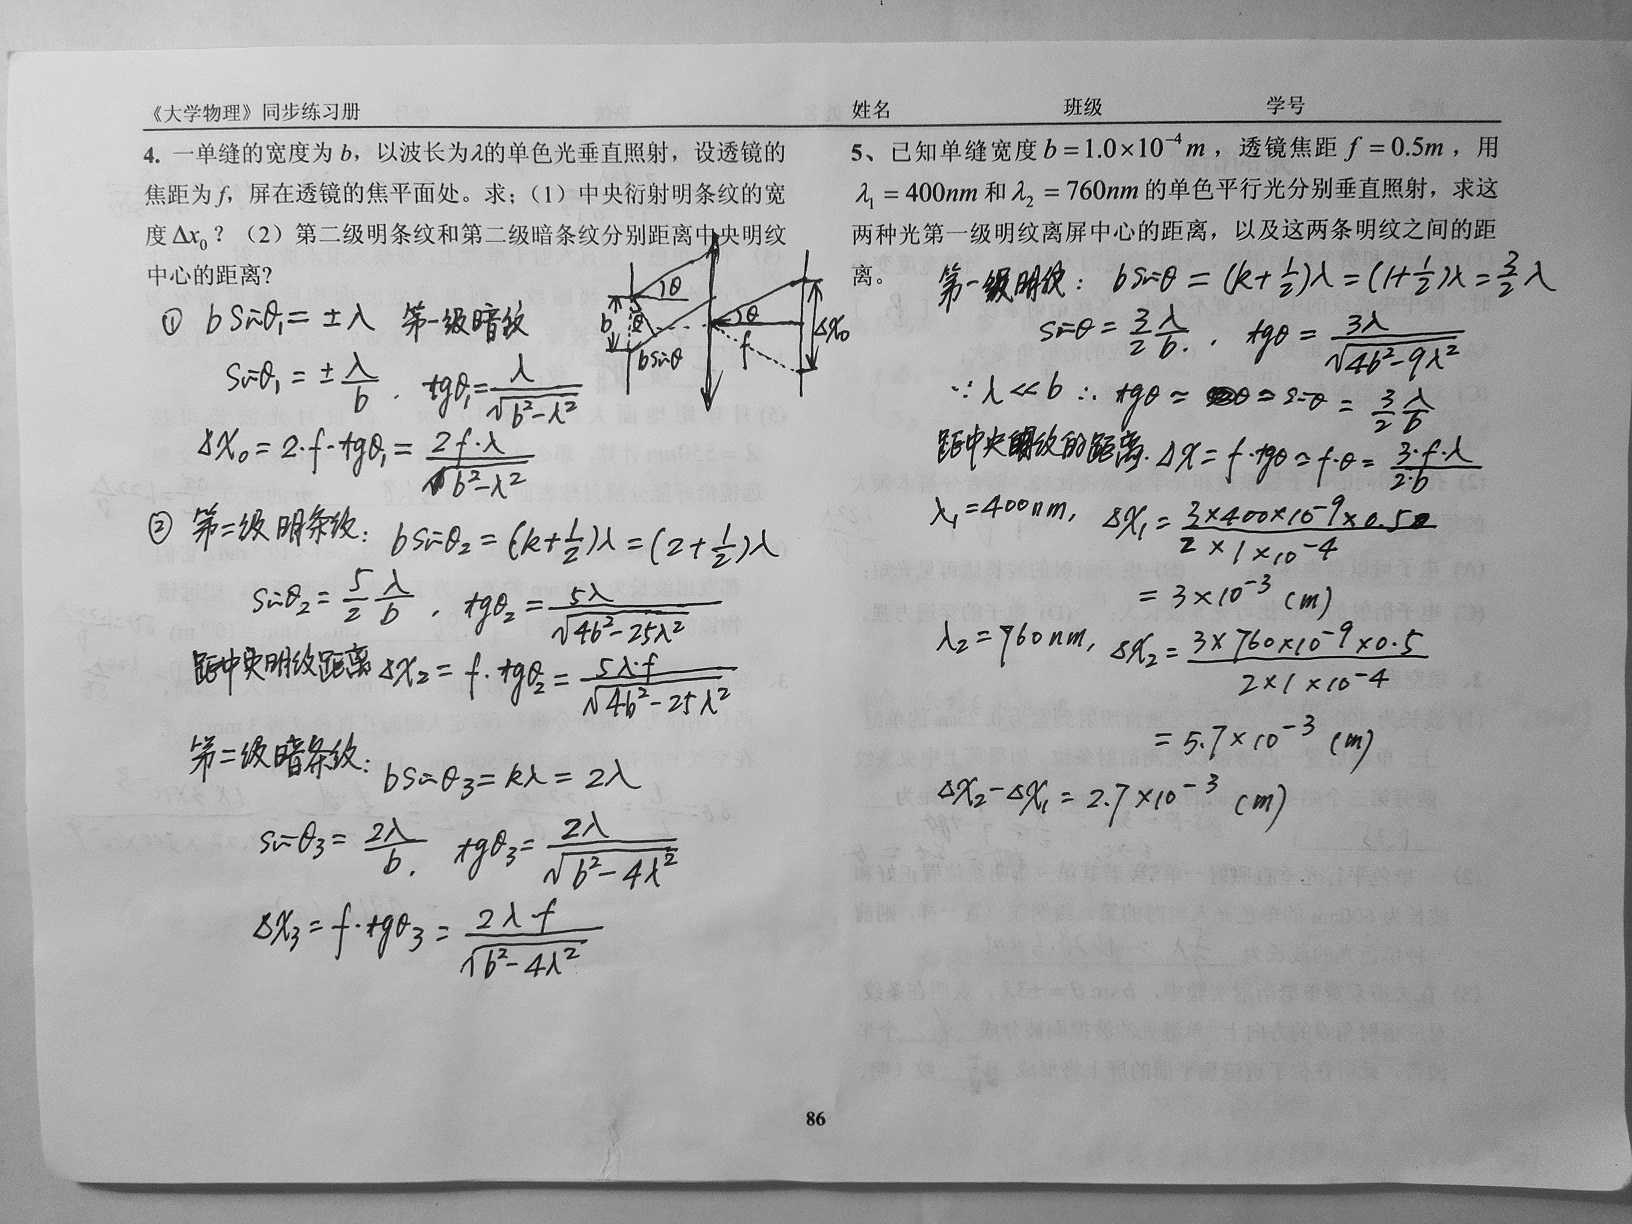 《大学物理》同步练习册
姓名 班级 学号
4. 一单缝的宽度为 b，以波长为λ的单色光垂直照射，设透镜的
焦距为 f，屏在透镜的焦平面处。求；（1）中央衍射明条纹的宽
度 Δx₀？（2）第二级明条纹和第二级暗条纹分别距离中央明纹
中心的距离?
θ
b
θ
bsinθ
θ
f
Δx₀
① bsinθ₁=±λ 第一级暗纹
sinθ₁=±λ/b . tgθ₁=λ/√(b²-λ²)
Δx₀=2·f·tgθ₁=2f·λ/√(b²-λ²)
② 第二级明条纹: bsinθ₂=(k+1/2)λ=(2+1/2)λ
sinθ₂=5/2 λ/b , tgθ₂=5λ/√(4b²-25λ²)
距中央明纹距离 Δx₂=f·tgθ₂=5λ·f/√(4b²-25λ²)
第二级暗条纹: bsinθ₃=kλ=2λ
sinθ₃=2λ/b . tgθ₃=2λ/√(b²-4λ²)
Δx₃=f·tgθ₃=2λf/√(b²-4λ²)
5、已知单缝宽度 b=1.0×10⁻⁴m，透镜焦距 f=0.5m，用
λ₁=400nm 和 λ₂=760nm 的单色平行光分别垂直照射，求这
两种光第一级明纹离屏中心的距离，以及这两条明纹之间的距
离。
第一级明纹: bsinθ=(k+1/2)λ=(1+1/2)λ=3/2 λ
sinθ=3/2 λ/b . , tgθ=3λ/√(4b²-9λ²)
∵λ≪b ∴ tgθ≈θ≈sinθ=3/2 λ/b
距中央明纹的距离. Δx=f·tgθ≈f·θ=3·f·λ/2·b
λ₁=400nm, Δx₁=3×400×10⁻⁹×0.5/2×1×10⁻⁴
=3×10⁻³(m)
λ₂=760nm, Δx₂=3×760×10⁻⁹×0.5/2×1×10⁻⁴
=5.7×10⁻³(m)
Δx₂-Δx₁=2.7×10⁻³(m)
86